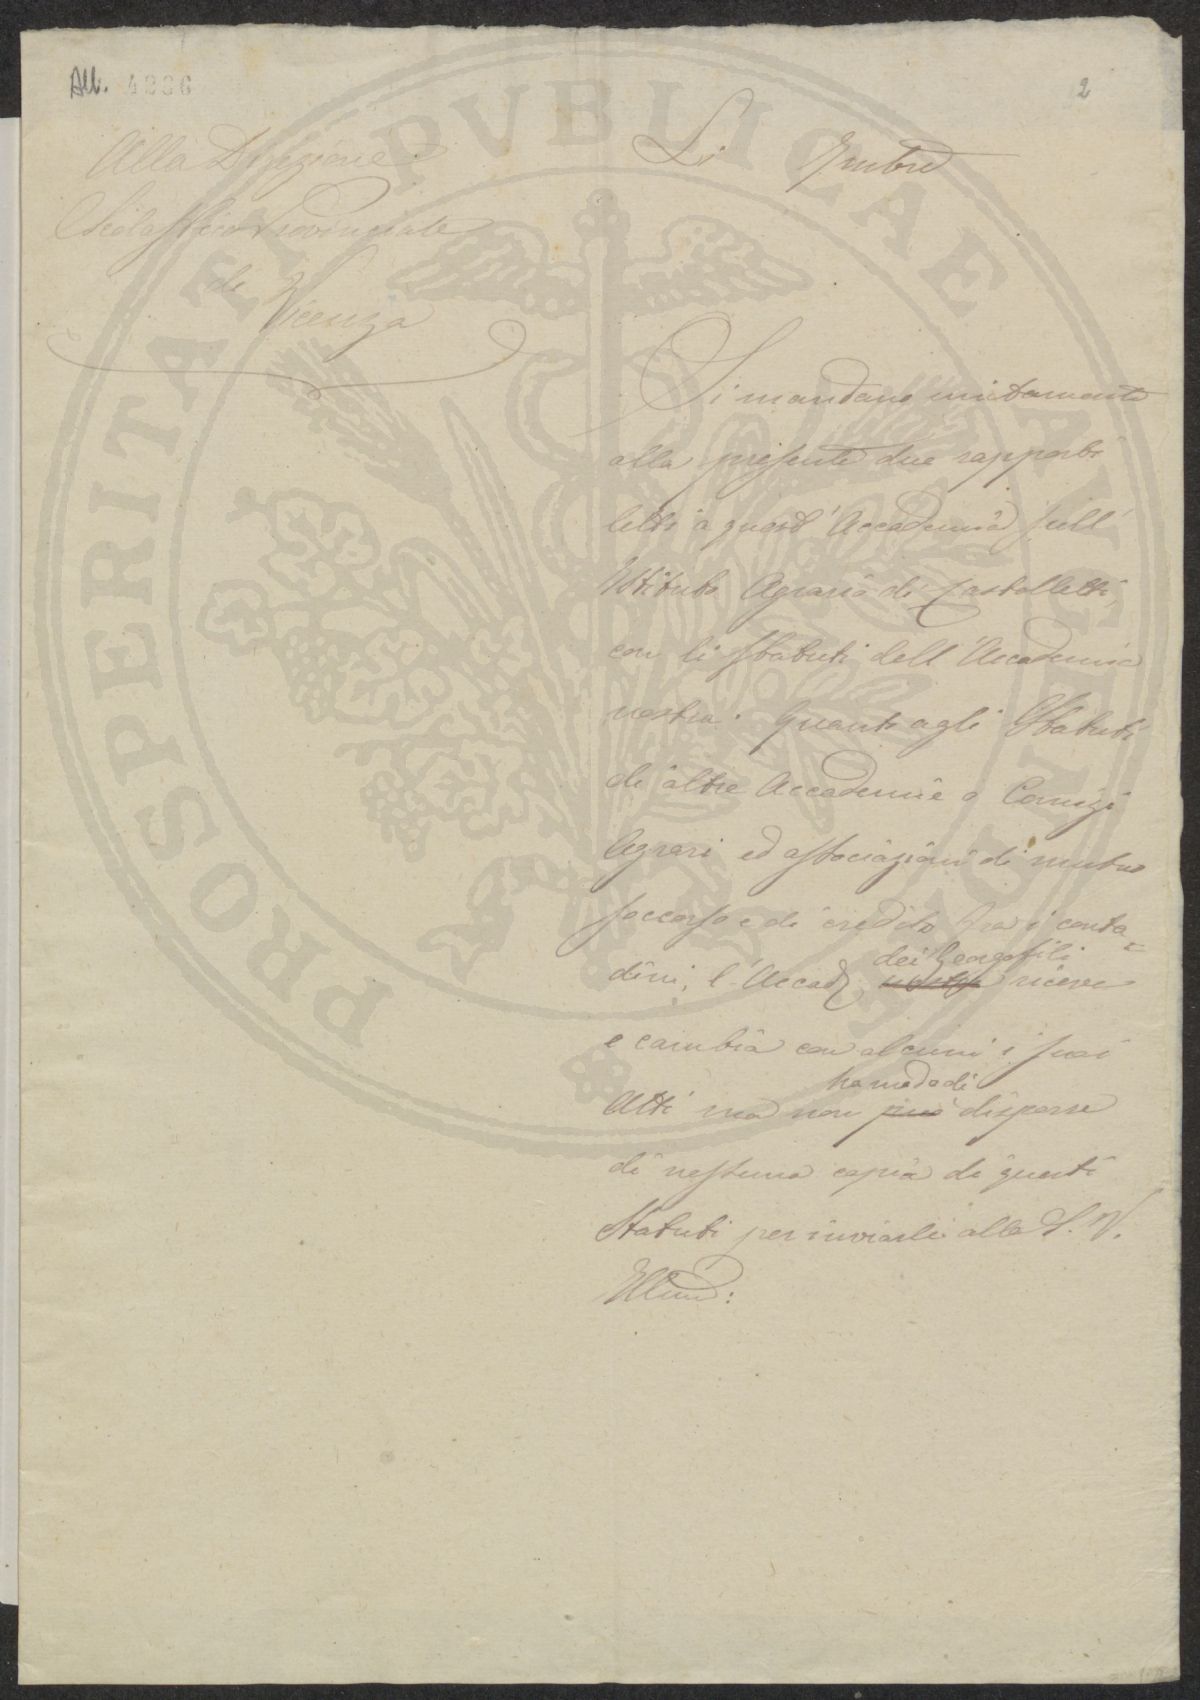 All. 4886
2
Alla Direzione
Scolastica Provinciale
di Vicenza
Li 
Si mandano unitamente
alla presente due rapporti
letti a quest'Accademia sull'
Istituto Agrario di Castelletti,
con li Statuti dell'Accademia
nostra. Quanto agli Statuti
di altre Accademie o Comizi
Agrari ed associazioni di mutuo
soccorso e di credito fra i conta=
dini, l'Accad. dei Georgofili riceve
e cambia con alcuni i suoi
Atti ma non può ha modo di disporre
di nessuna copia di questi
Statuti per inviarli alla S. V.
Illma:
PROSPERITATI PVBLICAE AVGENDAE